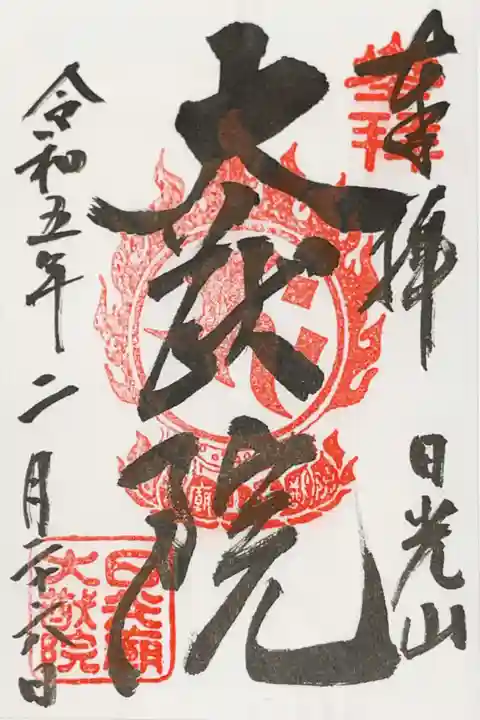 奉拝
日光山
大猷院
令和五年二月二十六日
登拝
日光廟
大猷院